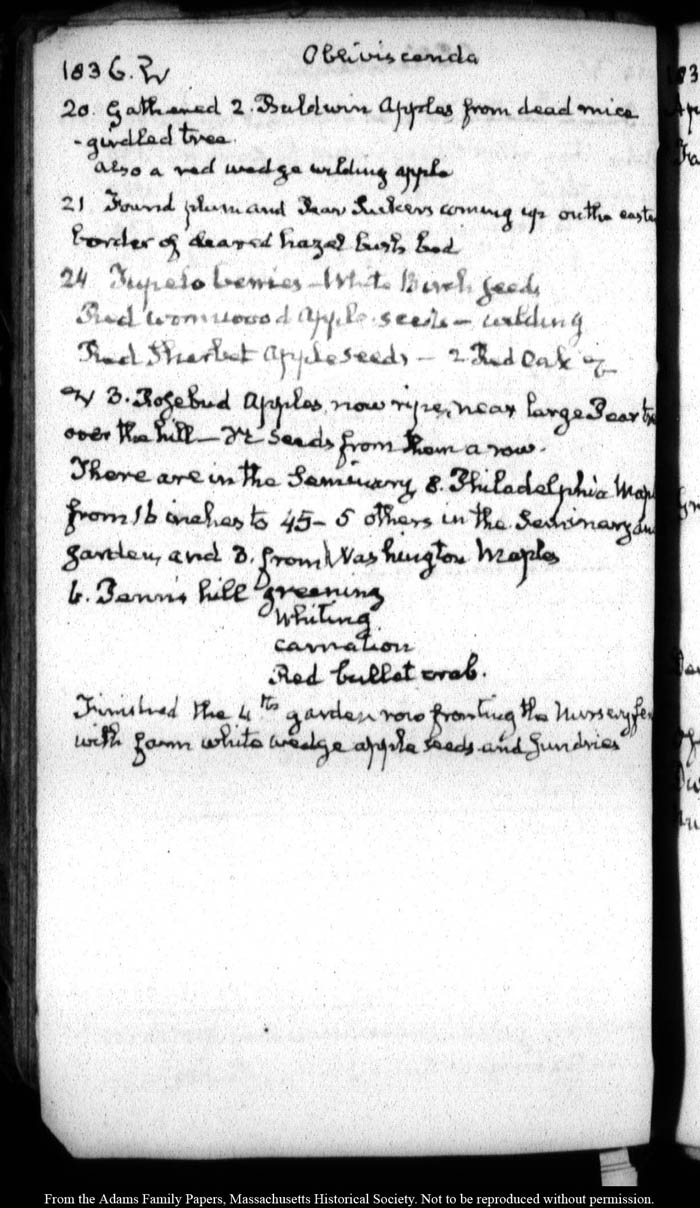 Obliviscenda
1836. IX
20. Gathered 2. Baldwin Apples from dead mice
-girdled tree.
also a red wedge wilding apple
21 Found plum and Pear Suckers coming up on the easte
border of cleared hazel bush bed
24 Tupelo berries – White Birch seeds
Red wormwood Apple-seeds – wilding
Red Sherbet Apple seeds – 2 Red Oak
3. Rosebud Apples, now ripe, near large Pear tr
over the hill – seeds from them a row.
There are in the Seminary 8. Philadelphia Map
from 16 inches to 45 – 5 others in the Seminary an
garden, and 3. from Washington Maples
6. Penn's hill greening
Whiting
carnation
Red bullet crab.
Finished the 4th garden row fronting the Nursery fe
with farm white wedge apple seeds and sundries
From the Adams Family Papers, Massachusetts Historical Society. Not to be reproduced without permission.